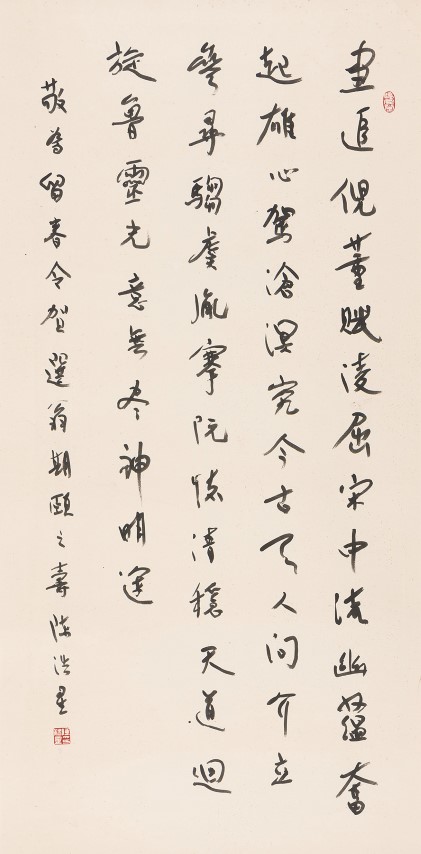 畫追倪董賦凌屈宋中流幽蘊奮
起雄心駕滄溟究今古天人問介立
尋騶虞胤搴阮清穩天道迴
旋魯靈光意無盡神明運
敬為留春令賀選翁期頤之壽陳浩星